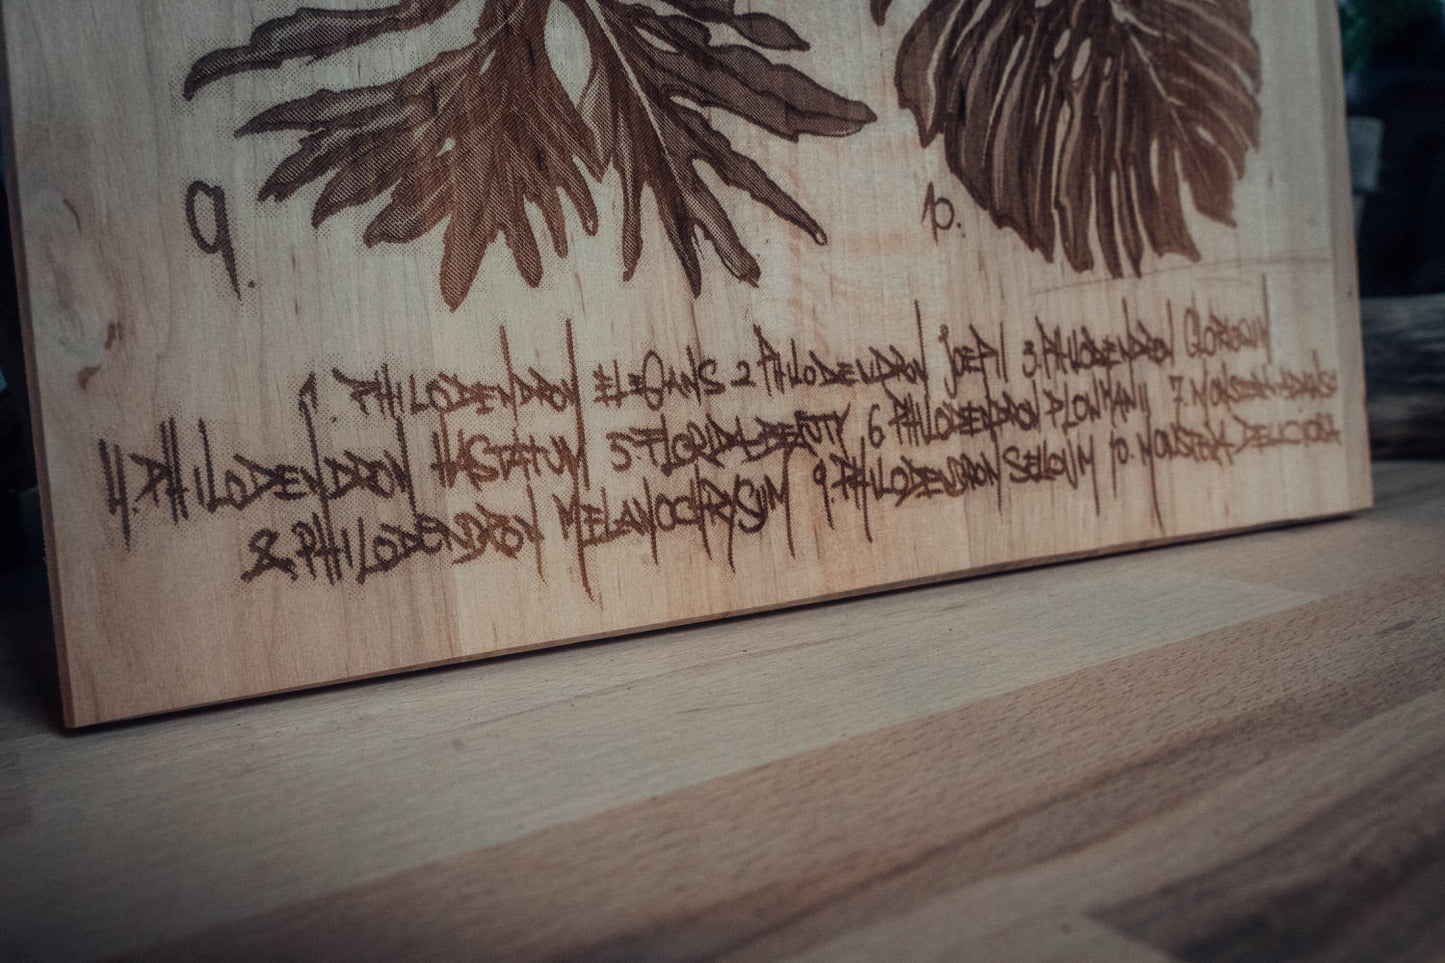 9.
10.
1. PHILODENDRON ELEGANS 2 PHILODENDRON JOEPII 3. PHILODENDRON GLORIOSUM
4. PHILODENDRON HASTATUM 5 FLORIDA BEAUTY 6 PHILODENDRON PLOWMANII 7. MONSTERA ADANSO
8. PHILODENDRON MELANOCHRYSUM 9. PHILODENDRON SELLOUM 10. MONSTERA DELICIOSA